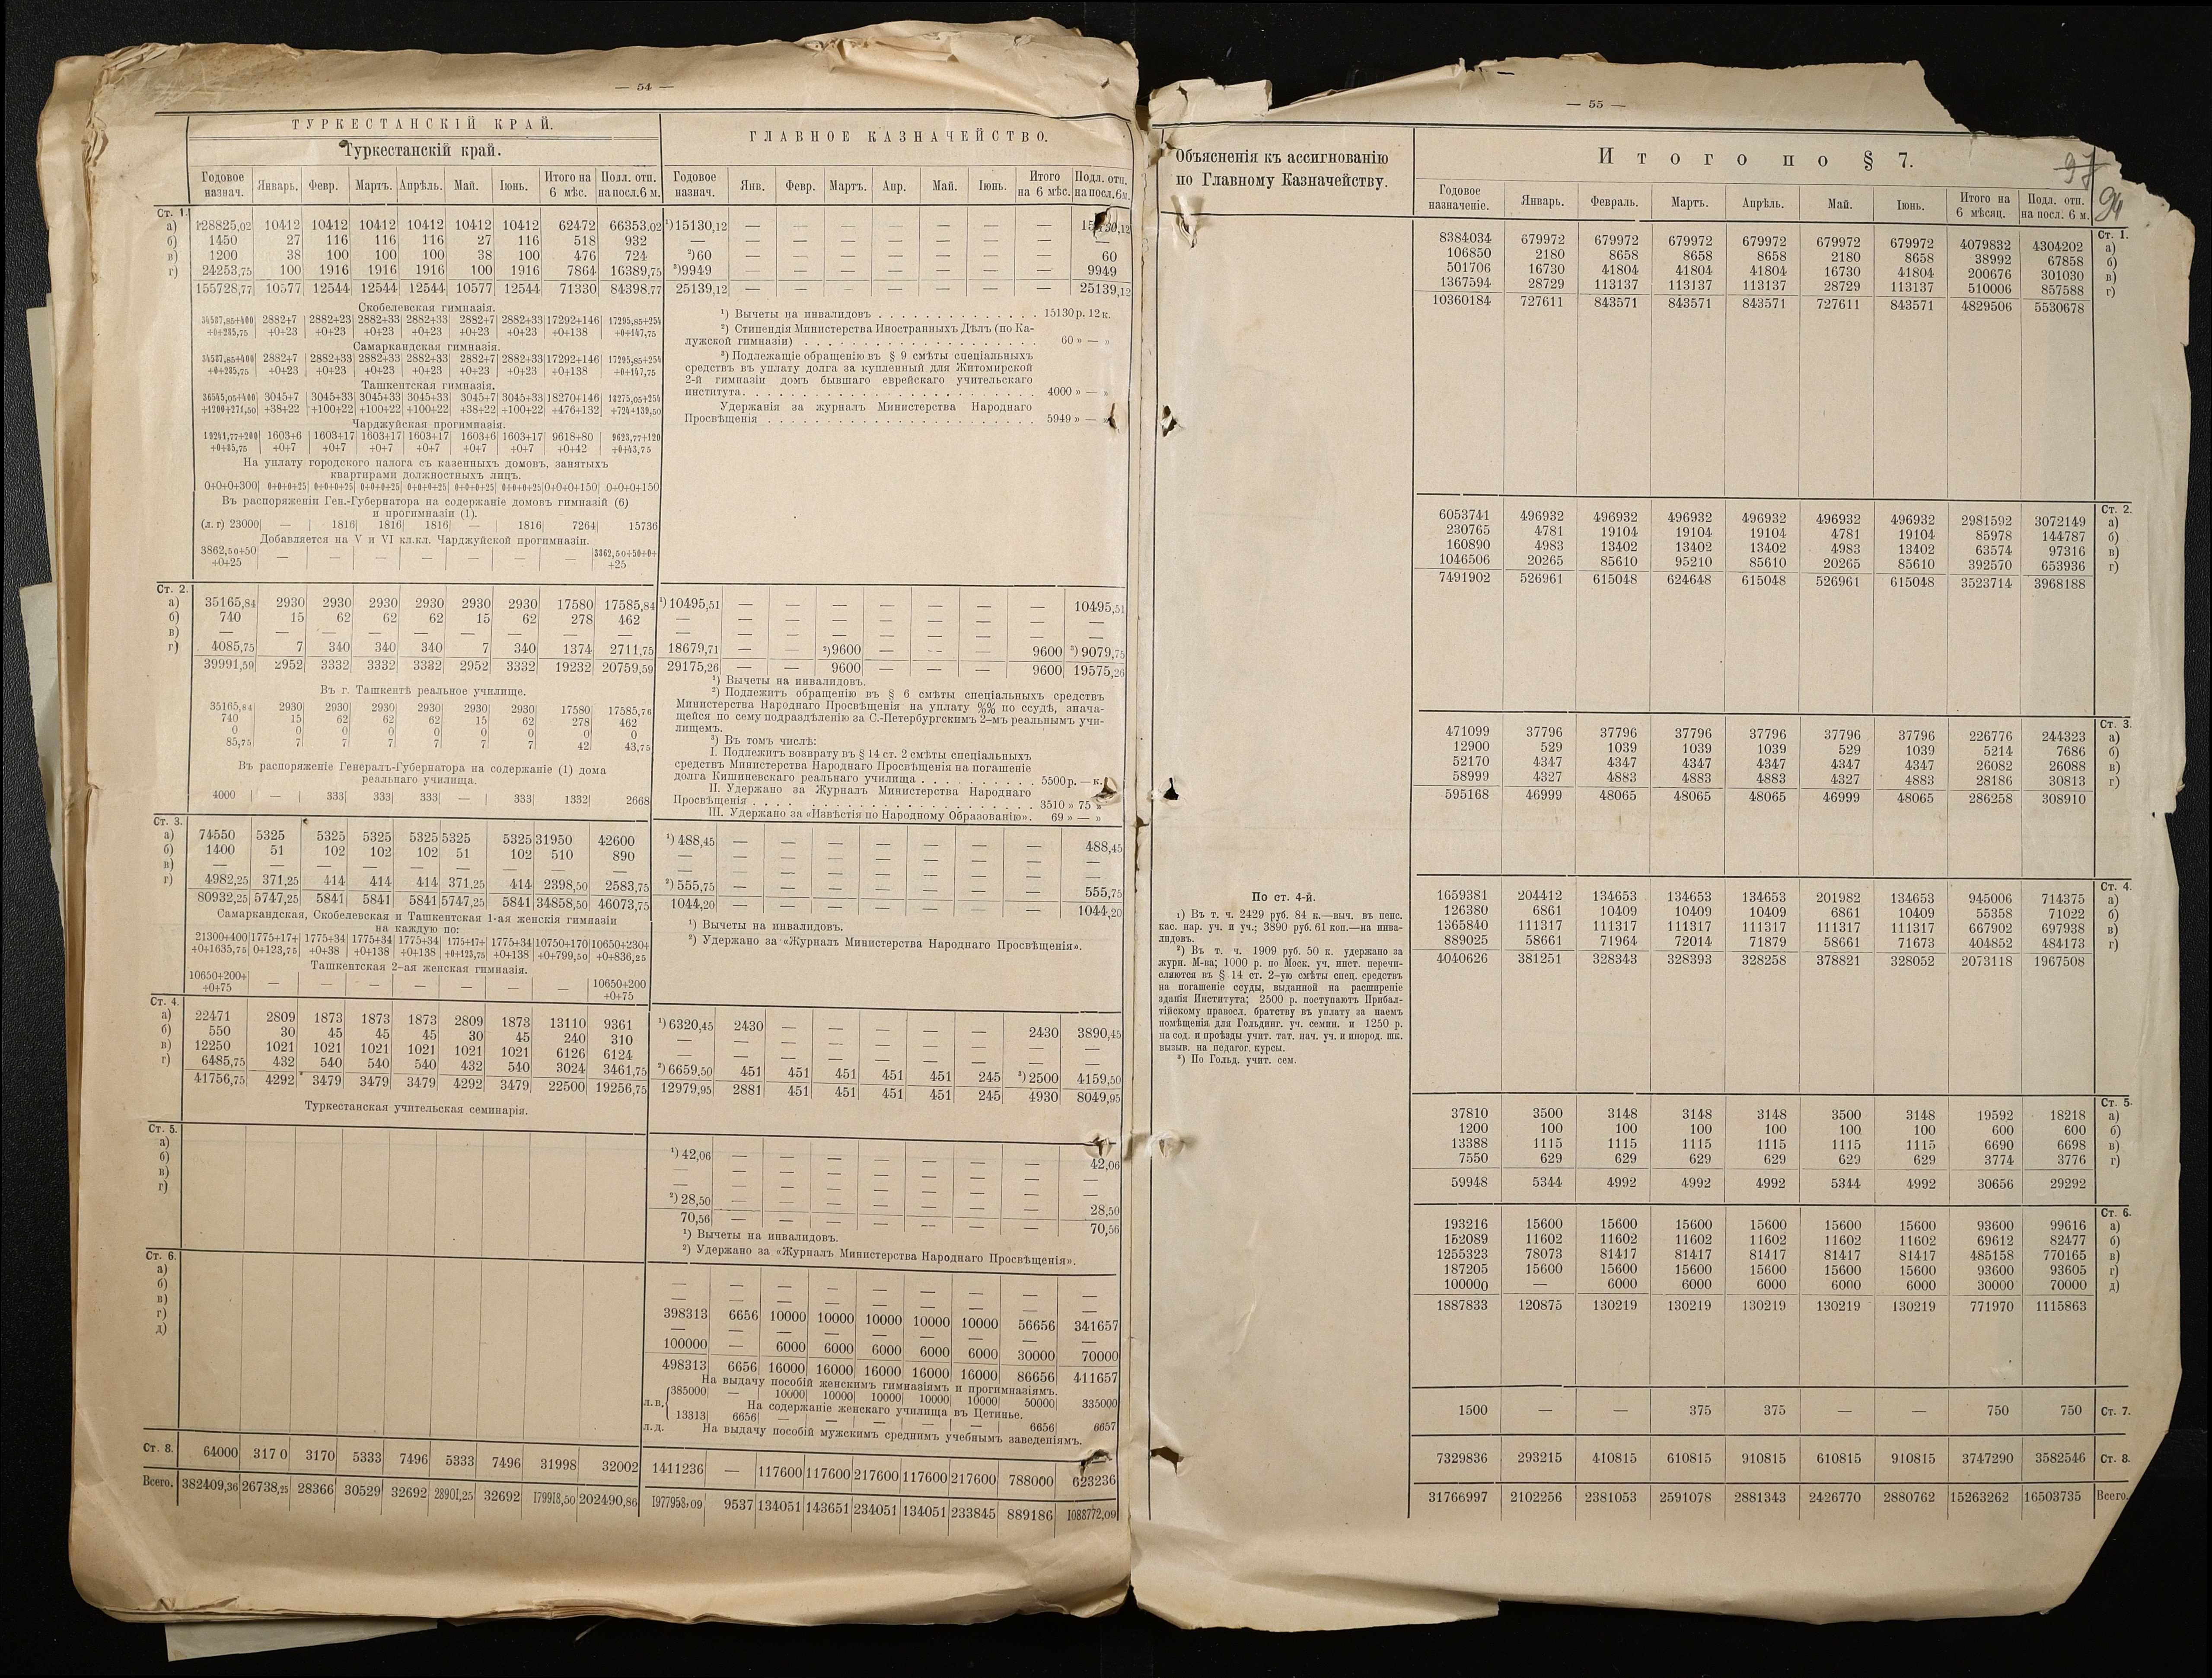 — 54 —
ТУРКЕСТАНСКІЙ КРАЙ.
Туркестанскій край.
Годовое назнач. Январь. Февр. Мартъ. Апрѣль. Май. Іюнь. Итого на 6 мѣс. Подл. отп. на посл. 6 м.
Ст. 1.
а) 128825,02 10412 10412 10412 10412 10412 10412 62472 66353.02
б) 1450 27 116 116 116 27 116 518 932
в) 1200 38 100 100 100 38 100 476 724
г) 24253,75 100 1916 1916 1916 100 1916 7864 16389,75
155728,77 10577 12544 12544 12544 10577 12544 71330 84398.77
Скобелевская гимназія.
34587,85+400 2882+7 2882+23 2882+33 2882+33 2882+7 2882+33 17292+146 17295,85+254
+0+285,75 +0+23 +0+23 +0+23 +0+23 +0+23 +0+23 +0+138 +0+147,75
Самаркандская гимназія.
34587,85+400 2882+7 2882+33 2882+33 2882+33 2882+7 2882+33 17292+146 17295,85+254
+0+285,75 +0+23 +0+23 +0+23 +0+23 +0+23 +0+23 +0+138 +0+147,75
Ташкентская гимназія.
36545,05+400 3045+7 3045+33 3045+33 3045+33 3045+7 3045+33 18270+146 18275,05+254
+1200+271,50 +38+22 +100+22 +100+22 +100+22 +38+22 +100+22 +476+132 +724+139,50
Чарджуйская прогимназія.
19241,77+200 1603+6 1603+17 1603+17 1603+17 1603+6 1603+17 9618+80 9623,77+120
+0+85,75 +0+7 +0+7 +0+7 +0+7 +0+7 +0+7 +0+42 +0+43,75
На уплату городского налога съ казенныхъ домовъ, занятыхъ
квартирами должностныхъ лицъ.
0+0+0+300 0+0+0+25 0+0+0+25 0+0+0+25 0+0+0+25 0+0+0+25 0+0+0+25 0+0+0+150 0+0+0+150
Въ распоряженіи Ген.-Губернатора на содержаніе домовъ гимназій (6)
и прогимназіи (1).
(л. г) 23000 — 1816 1816 1816 — 1816 7264 15736
Добавляется на V и VI кл.кл. Чарджуйской прогимназіи.
3862,50+50 — — — — — — — 3862,50+50+0+
+0+25 +25
Ст. 2.
а) 35165,84 2930 2930 2930 2930 2930 2930 17580 17585,84
б) 740 15 62 62 62 15 62 278 462
в) — — — — — — — — —
г) 4085,75 7 340 340 340 7 340 1374 2711,75
39991,59 2952 3332 3332 3332 2952 3332 19232 20759,59
Въ г. Ташкентѣ реальное училище.
35165,84 2930 2930 2930 2930 2930 2930 17580 17585,76
740 15 62 62 62 15 62 278 462
0 0 0 0 0 0 0 0 0
85,75 7 7 7 7 7 7 42 43,75
Въ распоряженіе Генералъ-Губернатора на содержаніе (1) дома
реальнаго училища.
4000 — 333 333 333 — 333 1332 2668
Ст. 3.
а) 74550 5325 5325 5325 5325 5325 5325 31950 42600
б) 1400 51 102 102 102 51 102 510 890
в) — — — — — — — — —
г) 4982,25 371,25 414 414 414 371,25 414 2398,50 2583,75
80932,25 5747,25 5841 5841 5841 5747,25 5841 34858,50 46073,75
Самаркандская, Скобелевская и Ташкентская 1-ая женскія гимназіи
на каждую по:
21300+400 1775+17+ 1775+34 1775+34 1775+34 1775+17+ 1775+34 10750+170 10650+230+
+0+1635,75 0+123,75 +0+38 +0+138 +0+138 +0+123,75 +0+138 +0+799,50 +0+836,25
Ташкентская 2-ая женская гимназія.
10650+200+ — — — — — — — 10650+200
+0+75 +0+75
Ст. 4.
а) 22471 2809 1873 1873 1873 2809 1873 13110 9361
б) 550 30 45 45 45 30 45 240 310
в) 12250 1021 1021 1021 1021 1021 1021 6126 6124
г) 6485,75 432 540 540 540 432 540 3024 3461,75
41756,75 4292 3479 3479 3479 4292 3479 22500 19256,75
Туркестанская учительская семинарія.
Ст. 5.
а)
б)
в)
г)
Ст. 6.
а)
б)
в)
г)
д)
Ст. 8. 64000 317 0 3170 5333 7496 5333 7496 31998 32002
Всего. 382409,36 26738,25 28366 30529 32692 28901,25 32692 179918,50 202490,86
ГЛАВНОЕ КАЗНАЧЕЙСТВО.
Годовое назнач. Янв. Февр. Мартъ. Апр. Май. Іюнь. Итого на 6 мѣс. Подл. отп. на посл. 6 м.
¹)15130,12 — — — — — — — 15130,12
— —
²)60 — — — — — — — 60
³)9949 — — — — — — — 9949
25139,12 — — — — — — — 25139,12
¹) Вычеты на инвалидовъ . . . . . 15130 р. 12 к.
²) Стипендія Министерства Иностранныхъ Дѣлъ (по Ка-
лужской гимназіи) . . . . . 60 » — »
³) Подлежащіе обращенію въ § 9 смѣты спеціальныхъ
средствъ въ уплату долга за купленный для Житомирской
2-й гимназіи домъ бывшаго еврейскаго учительскаго
института. . . . . . 4000 » — »
Удержанія за журналъ Министерства Народнаго
Просвѣщенія . . . . . 5949 » — »
¹) 10495,51 — — — — — — — 10495,51
— — — — — — — — —
— — — — — — — — —
18679,71 — — ²)9600 — — — 9600 ³) 9079,75
29175,26 — — 9600 — — — 9600 19575,26
¹) Вычеты на инвалидовъ.
²) Подлежитъ обращенію въ § 6 смѣты спеціальныхъ средствъ
Министерства Народнаго Просвѣщенія на уплату %% по ссудѣ, знача-
щейся по сему подраздѣленію за С.-Петербургскимъ 2-мъ реальнымъ учи-
лищемъ.
³) Въ томъ числѣ:
I. Подлежитъ возврату въ § 14 ст. 2 смѣты спеціальныхъ
средствъ Министерства Народнаго Просвѣщенія на погашеніе
долга Кишиневскаго реальнаго училища . . . . . 5500 р. — к.
II. Удержано за Журналъ Министерства Народнаго
Просвѣщенія . . . . . 3510 » 75 »
III. Удержано за «Извѣстія по Народному Образованію». 69 » — »
¹) 488,45 — — — — — — — 488,45
— — — — — — — — —
— — — — — — — — —
²) 555,75 — — — — — — — 555,75
1044,20 — — — — — — — 1044,20
¹) Вычеты на инвалидовъ.
²) Удержано за «Журналъ Министерства Народнаго Просвѣщенія».
¹) 6320,45 2430 — — — — — 2430 3890,45
— — — — — — — — —
— — — — — — — — —
²) 6659,50 451 451 451 451 451 245 ³) 2500 4159,50
12979,95 2881 451 451 451 451 245 4930 8049,95
¹) 42,06 — — — — — — — 42,06
— — — — — — — — —
— — — — — — — — —
²) 28,50 — — — — — — — 28,50
70,56 — — — — — — — 70,56
¹) Вычеты на инвалидовъ.
²) Удержано за «Журналъ Министерства Народнаго Просвѣщенія».
— — — — — — — — —
— — — — — — — — —
398313 6656 10000 10000 10000 10000 10000 56656 341657
— — — — — — — — —
100000 — 6000 6000 6000 6000 6000 30000 70000
498313 6656 16000 16000 16000 16000 16000 86656 411657
На выдачу пособій женскимъ гимназіямъ и прогимназіямъ.
л.в. 385000 — 10000 10000 10000 10000 10000 50000 335000
На содержаніе женскаго училища въ Цетинье.
13313 6656 — — — — — 6656 6657
л.д. На выдачу пособій мужскимъ среднимъ учебнымъ заведеніямъ.
1411236 — 117600 117600 217600 117600 217600 788000 623236
1977958,09 9537 134051 143651 234051 134051 233845 889186 1088772,09
— 55 —
Объясненія къ ассигнованію
по Главному Казначейству.
По ст. 4-й.
¹) Въ т. ч. 2429 руб. 84 к.—выч. въ пенс.
кас. нар. уч. и уч.; 3890 руб. 61 коп.—на инва-
лидовъ.
²) Въ т. ч. 1909 руб. 50 к. удержано за
журн. М-ва; 1000 р. по Моск. уч. инст. перечи-
сляются въ § 14 ст. 2-ую смѣты спец. средствъ
на погашеніе ссуды, выданной на расширеніе
зданія Института; 2500 р. поступаютъ Прибал-
тійскому правосл. братству въ уплату за наемъ
помѣщенія для Гольдинг. уч. семин. и 1250 р.
на сод. и проѣзды учит. тат. нач. уч. и инород. шк.
вызыв. на педагог. курсы.
³) По Гольд. учит. сем.
Итого по § 7.
97
94
Годовое назначеніе. Январь. Февраль. Мартъ. Апрѣль. Май. Іюнь. Итого на 6 мѣсяц. Подл. отп. на посл. 6 м.
Ст. 1.
8384034 679972 679972 679972 679972 679972 679972 4079832 4304202 а)
106850 2180 8658 8658 8658 2180 8658 38992 67858 б)
501706 16730 41804 41804 41804 16730 41804 200676 301030 в)
1367594 28729 113137 113137 113137 28729 113137 510006 857588 г)
10360184 727611 843571 843571 843571 727611 843571 4829506 5530678
Ст. 2.
6053741 496932 496932 496932 496932 496932 496932 2981592 3072149 а)
230765 4781 19104 19104 19104 4781 19104 85978 144787 б)
160890 4983 13402 13402 13402 4983 13402 63574 97316 в)
1046506 20265 85610 95210 85610 20265 85610 392570 653936 г)
7491902 526961 615048 624648 615048 526961 615048 3523714 3968188
Ст. 3.
471099 37796 37796 37796 37796 37796 37796 226776 244323 а)
12900 529 1039 1039 1039 529 1039 5214 7686 б)
52170 4347 4347 4347 4347 4347 4347 26082 26088 в)
58999 4327 4883 4883 4883 4327 4883 28186 30813 г)
595168 46999 48065 48065 48065 46999 48065 286258 308910
Ст. 4.
1659381 204412 134653 134653 134653 201982 134653 945006 714375 а)
126380 6861 10409 10409 10409 6861 10409 55358 71022 б)
1365840 111317 111317 111317 111317 111317 111317 667902 697938 в)
889025 58661 71964 72014 71879 58661 71673 404852 484173 г)
4040626 381251 328343 328393 328258 378821 328052 2073118 1967508
Ст. 5.
37810 3500 3148 3148 3148 3500 3148 19592 18218 а)
1200 100 100 100 100 100 100 600 600 б)
13388 1115 1115 1115 1115 1115 1115 6690 6698 в)
7550 629 629 629 629 629 629 3774 3776 г)
59948 5344 4992 4992 4992 5344 4992 30656 29292
Ст. 6.
193216 15600 15600 15600 15600 15600 15600 93600 99616 а)
152089 11602 11602 11602 11602 11602 11602 69612 82477 б)
1255323 78073 81417 81417 81417 81417 81417 485158 770165 в)
187205 15600 15600 15600 15600 15600 15600 93600 93605 г)
100000 — 6000 6000 6000 6000 6000 30000 70000 д)
1887833 120875 130219 130219 130219 130219 130219 771970 1115863
1500 — — 375 375 — — 750 750 Ст. 7.
7329836 293215 410815 610815 910815 610815 910815 3747290 3582546 Ст. 8.
31766997 2102256 2381053 2591078 2881343 2426770 2880762 15263262 16503735 Всего.